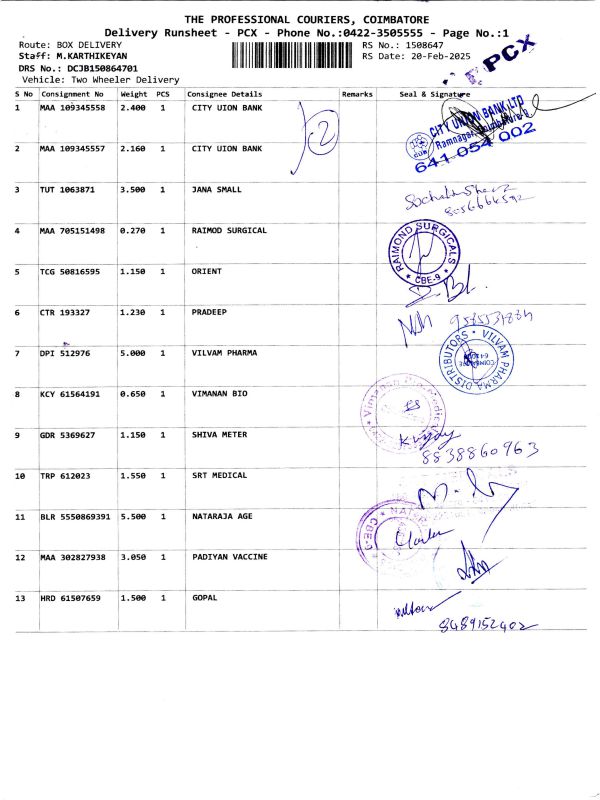 THE PROFESSIONAL COURIERS, COIMBATORE
Delivery Runsheet - PCX - Phone No.:0422-3505555 - Page No.:1
Route: BOX DELIVERY
RS No.: 1508647
Staff: M.KARTHIKEYAN
RS Date: 20-Feb-2025
DRS No.: DCJB150864701
Vehicle: Two Wheeler Delivery
PCX
S No Consignment No Weight PCS Consignee Details Remarks Seal & Signature
1 MAA 109345558 2.400 1 CITY UION BANK
2
CITY UNION BANK LTD
Ramnagar, Coimbatore-9
641 054 002
CUB
2 MAA 109345557 2.160 1 CITY UION BANK
3 TUT 1063871 3.500 1 JANA SMALL
4 MAA 705151498 0.270 1 RAIMOD SURGICAL
RAIMOND SURGICALS
CBE-9
5 TCG 50816595 1.150 1 ORIENT
6 CTR 193327 1.230 1 PRADEEP
7 DPI 512976 5.000 1 VILVAM PHARMA
VILVAM PHARMA DISTRIBUTORS
8 KCY 61564191 0.650 1 VIMANAN BIO
9 GDR 5369627 1.150 1 SHIVA METER
8838860963
10 TRP 612023 1.550 1 SRT MEDICAL
11 BLR 5550869391 5.500 1 NATARAJA AGE
CBE-9
12 MAA 302827938 3.050 1 PADIYAN VACCINE
13 HRD 61507659 1.500 1 GOPAL
8489152402